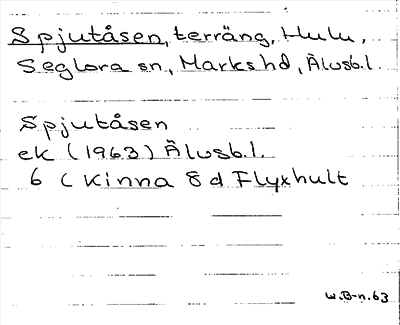 Spjutåsen, terräng, Hulu,
Seglora sn, Marks hd, Älvsb.l.
Spjutåsen
ek (1963) Älvsb.l.
6 C Kinna 8 d Flyxhult
W.B-n.63